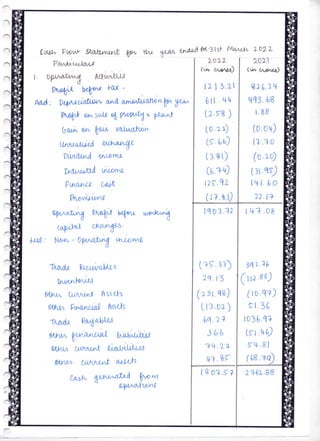 Cash Flow Statement for the year ended on 31st March 2022
Particulars 2022 2021
(in crores) (in crores)
1. Operating Activities
Profit before tax - 1213.21 826.24
Add: Depreciation and amortisation for year 611.44 493.68
Profit on sale of property & plant (2.58) 1.88
Gain on fair valuation (0.23) (0.04)
Unrealised exchange (5.66) 17.70
Dividend income (3.81) (0.20)
Interest income (6.74) (31.95)
Finance Cost 125.92 141.60
Provisions (27.83) 22.17
Operating Profit before working 1903.72 147.08
capital changes.
Less: Non - Operating income
Trade Receivables (75.33) 392.76
Inventories 29.13 (112.88)
Other Current Assets (231.98) (10.97)
Other Financial Assets (13.02) 51.36
Trade Payables 69.27 1036.97
Other financial liabilities 3.66 (51.46)
Other current liabilities 74.27 54.81
Other current assets 47.85 (68.79)
Cash generated from 1807.57 2762.88
operations